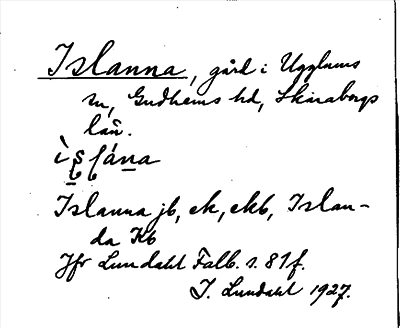 Islanna, gård i Ugglums
sn, Gudhems hd, Skaraborgs
län.
Islanna jb, ek, ekb, Islan-
da Kb
Jfr Lundahl Falb. s. 81f.
I. Lundahl 1927.